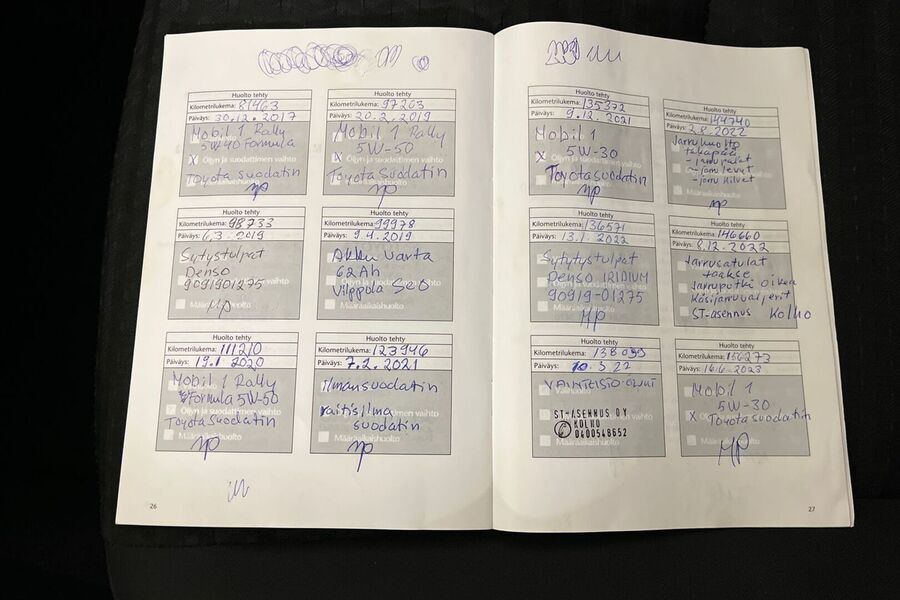 Huolto tehty
Kilometrilukema: 81463
Päiväys: 30.12.2017
Mobil 1 Rally
5W40 Formula
X Öljyn ja suodattimen vaihto
Toyota suodatin
MP
Huolto tehty
Kilometrilukema: 97263
Päiväys: 20.2.2019
Mobil 1 Rally
5W-50
X Öljyn ja suodattimen vaihto
Toyota suodatin
MP
Huolto tehty
Kilometrilukema: 98733
Päiväys: 6.3.2019
Sytystulpat
Denso
9091901275
MP
Huolto tehty
Kilometrilukema: 99978
Päiväys: 9.4.2019
Akku Varta
62Ah
Vilppola SEO
Huolto tehty
Kilometrilukema: 111210
Päiväys: 19.1 2020
Mobil 1 Rally
Formula 5W-50
Öljyn ja suodattimen vaihto
Toyota suodatin
Määräaikaishuolto
MP
Huolto tehty
Kilometrilukema: 123946
Päiväys: 7.2.2021
ilmansuodatin
raitisilma
suodatin
Määräaikaishuolto
MP
26
Huolto tehty
Kilometrilukema: 135372
Päiväys: 9.12.2021
Mobil 1
5W-30
X Öljyn ja suodattimen vaihto
Toyota suodatin
MP
Huolto tehty
Kilometrilukema: 144740
Päiväys: 2.8.2022
Jarruhuolto
takapää
-jarrupalat
-jarrulevyt
-jarrukilvet
MP
Huolto tehty
Kilometrilukema: 136571
Päiväys: 13.1.2022
Sytytystulpat
DENSO IRIDIUM
90919-01275
MP
Huolto tehty
Kilometrilukema: 146660
Päiväys: 8.12.2022
Jarrusatulat
taakse
Jarruputki oikea
Käsijarruvaijerit
ST-asennus Kolho
Huolto tehty
Kilometrilukema:
Päiväys:
ST-ASENNUS OY
KOLHO
0400548652
Huolto tehty
Kilometrilukema: 156273
Päiväys: 16.6.2023
Mobil 1
5W-30
X Toyota suodatin
MP
27